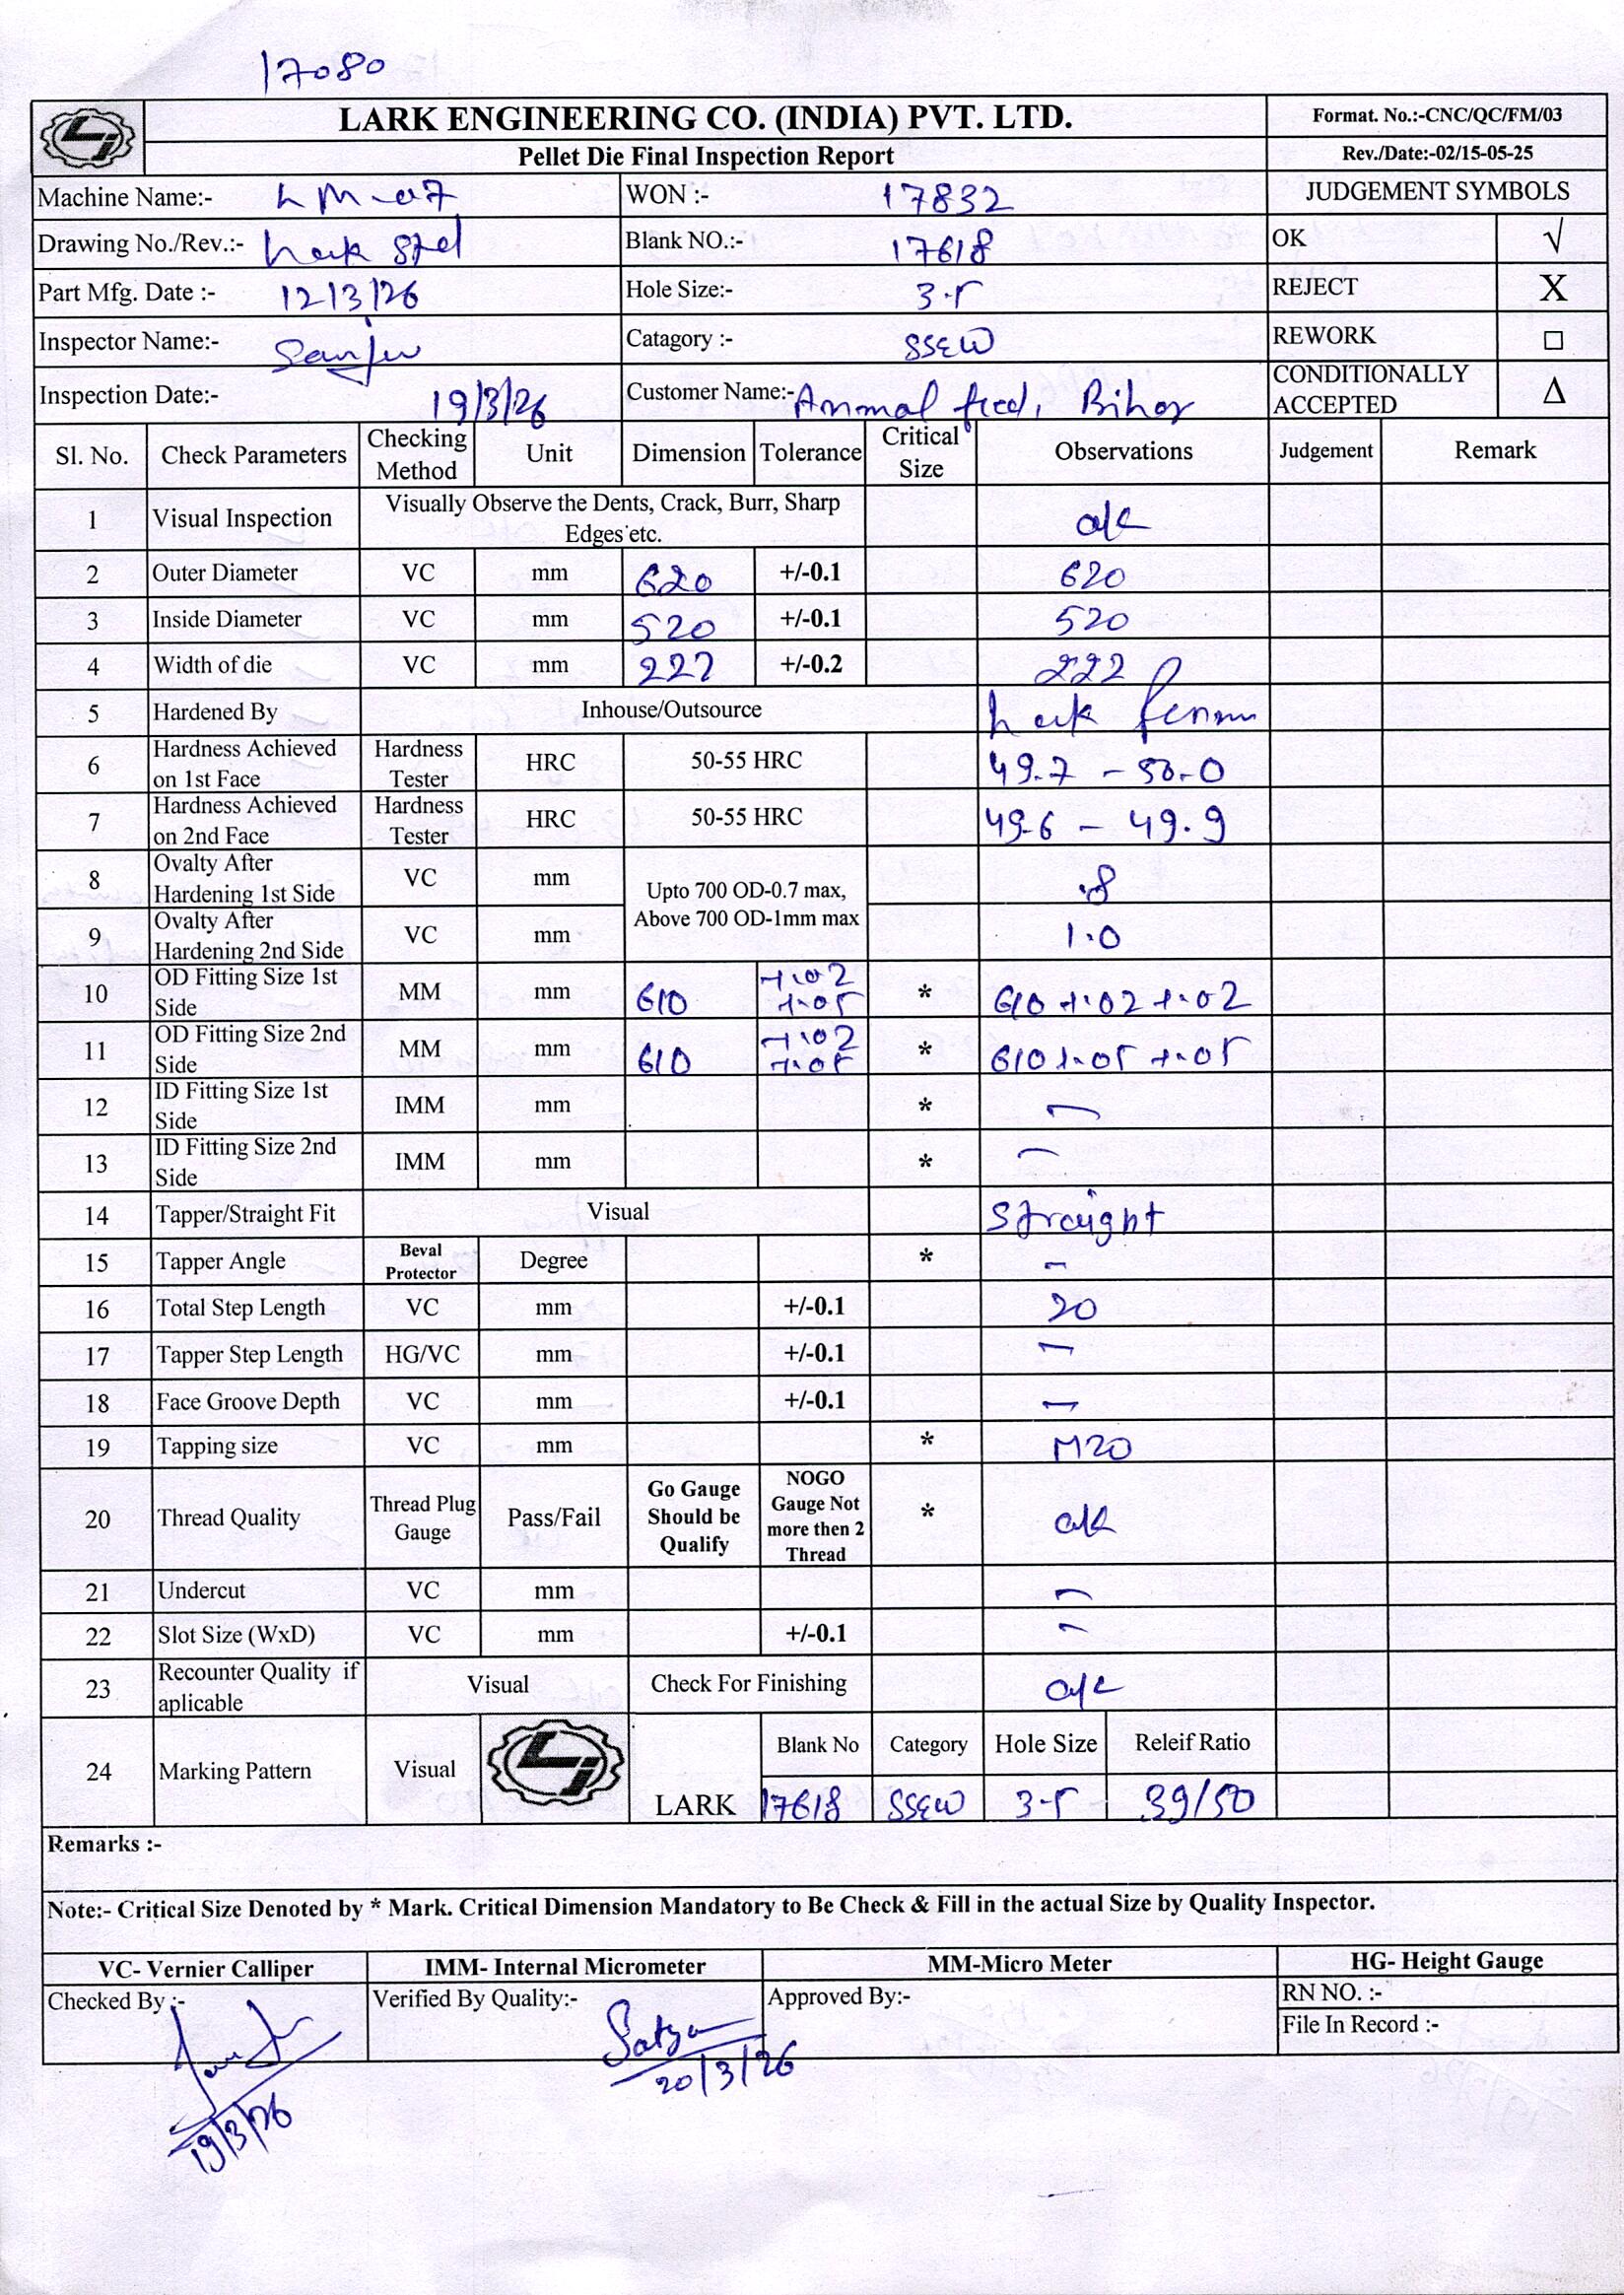 17080
LARK ENGINEERING CO. (INDIA) PVT. LTD.
Format. No.:-CNC/QC/FM/03
Pellet Die Final Inspection Report
Rev./Date:-02/15-05-25
Machine Name:- LM-07 WON :- 17832 JUDGEMENT SYMBOLS
Drawing No./Rev.:- Lark Std Blank NO.:- 17618 OK √
Part Mfg. Date :- 12/3/26 Hole Size:- 3.5 REJECT X
Inspector Name:- Sanju Catagory :- SSEW REWORK □
Inspection Date:- 19/3/26 Customer Name:- Animal feed, Bihar CONDITIONALLY ACCEPTED Δ
Sl. No. Check Parameters Checking Method Unit Dimension Tolerance Critical Size Observations Judgement Remark
1 Visual Inspection Visually Observe the Dents, Crack, Burr, Sharp Edges etc. o/k
2 Outer Diameter VC mm 620 +/-0.1 620
3 Inside Diameter VC mm 520 +/-0.1 520
4 Width of die VC mm 222 +/-0.2 222
5 Hardened By Inhouse/Outsource Lark
6 Hardness Achieved on 1st Face Hardness Tester HRC 50-55 HRC 49.7 - 50.0
7 Hardness Achieved on 2nd Face Hardness Tester HRC 50-55 HRC 49.6 - 49.9
8 Ovalty After Hardening 1st Side VC mm Upto 700 OD-0.7 max, Above 700 OD-1mm max .8
9 Ovalty After Hardening 2nd Side VC mm 1.0
10 OD Fitting Size 1st Side MM mm 610 +.02 +.05 * 610 +.02 +.02
11 OD Fitting Size 2nd Side MM mm 610 +.02 +.05 * 610 +.05 +.05
12 ID Fitting Size 1st Side IMM mm * -
13 ID Fitting Size 2nd Side IMM mm * -
14 Tapper/Straight Fit Visual Straight
15 Tapper Angle Beval Protector Degree * -
16 Total Step Length VC mm +/-0.1 20
17 Tapper Step Length HG/VC mm +/-0.1 -
18 Face Groove Depth VC mm +/-0.1 -
19 Tapping size VC mm * M20
20 Thread Quality Thread Plug Gauge Pass/Fail Go Gauge Should be Qualify NOGO Gauge Not more then 2 Thread * o/k
21 Undercut VC mm -
22 Slot Size (WxD) VC mm +/-0.1 -
23 Recounter Quality if aplicable Visual Check For Finishing o/k
24 Marking Pattern Visual LARK Blank No Category Hole Size Releif Ratio
17618 SSEW 3.5 39/50
Remarks :-
Note:- Critical Size Denoted by * Mark. Critical Dimension Mandatory to Be Check & Fill in the actual Size by Quality Inspector.
VC- Vernier Calliper IMM- Internal Micrometer MM-Micro Meter HG- Height Gauge
Checked By :- Verified By Quality:- Satya Approved By:- RN NO. :-
File In Record :-
20/3/26
19/3/26